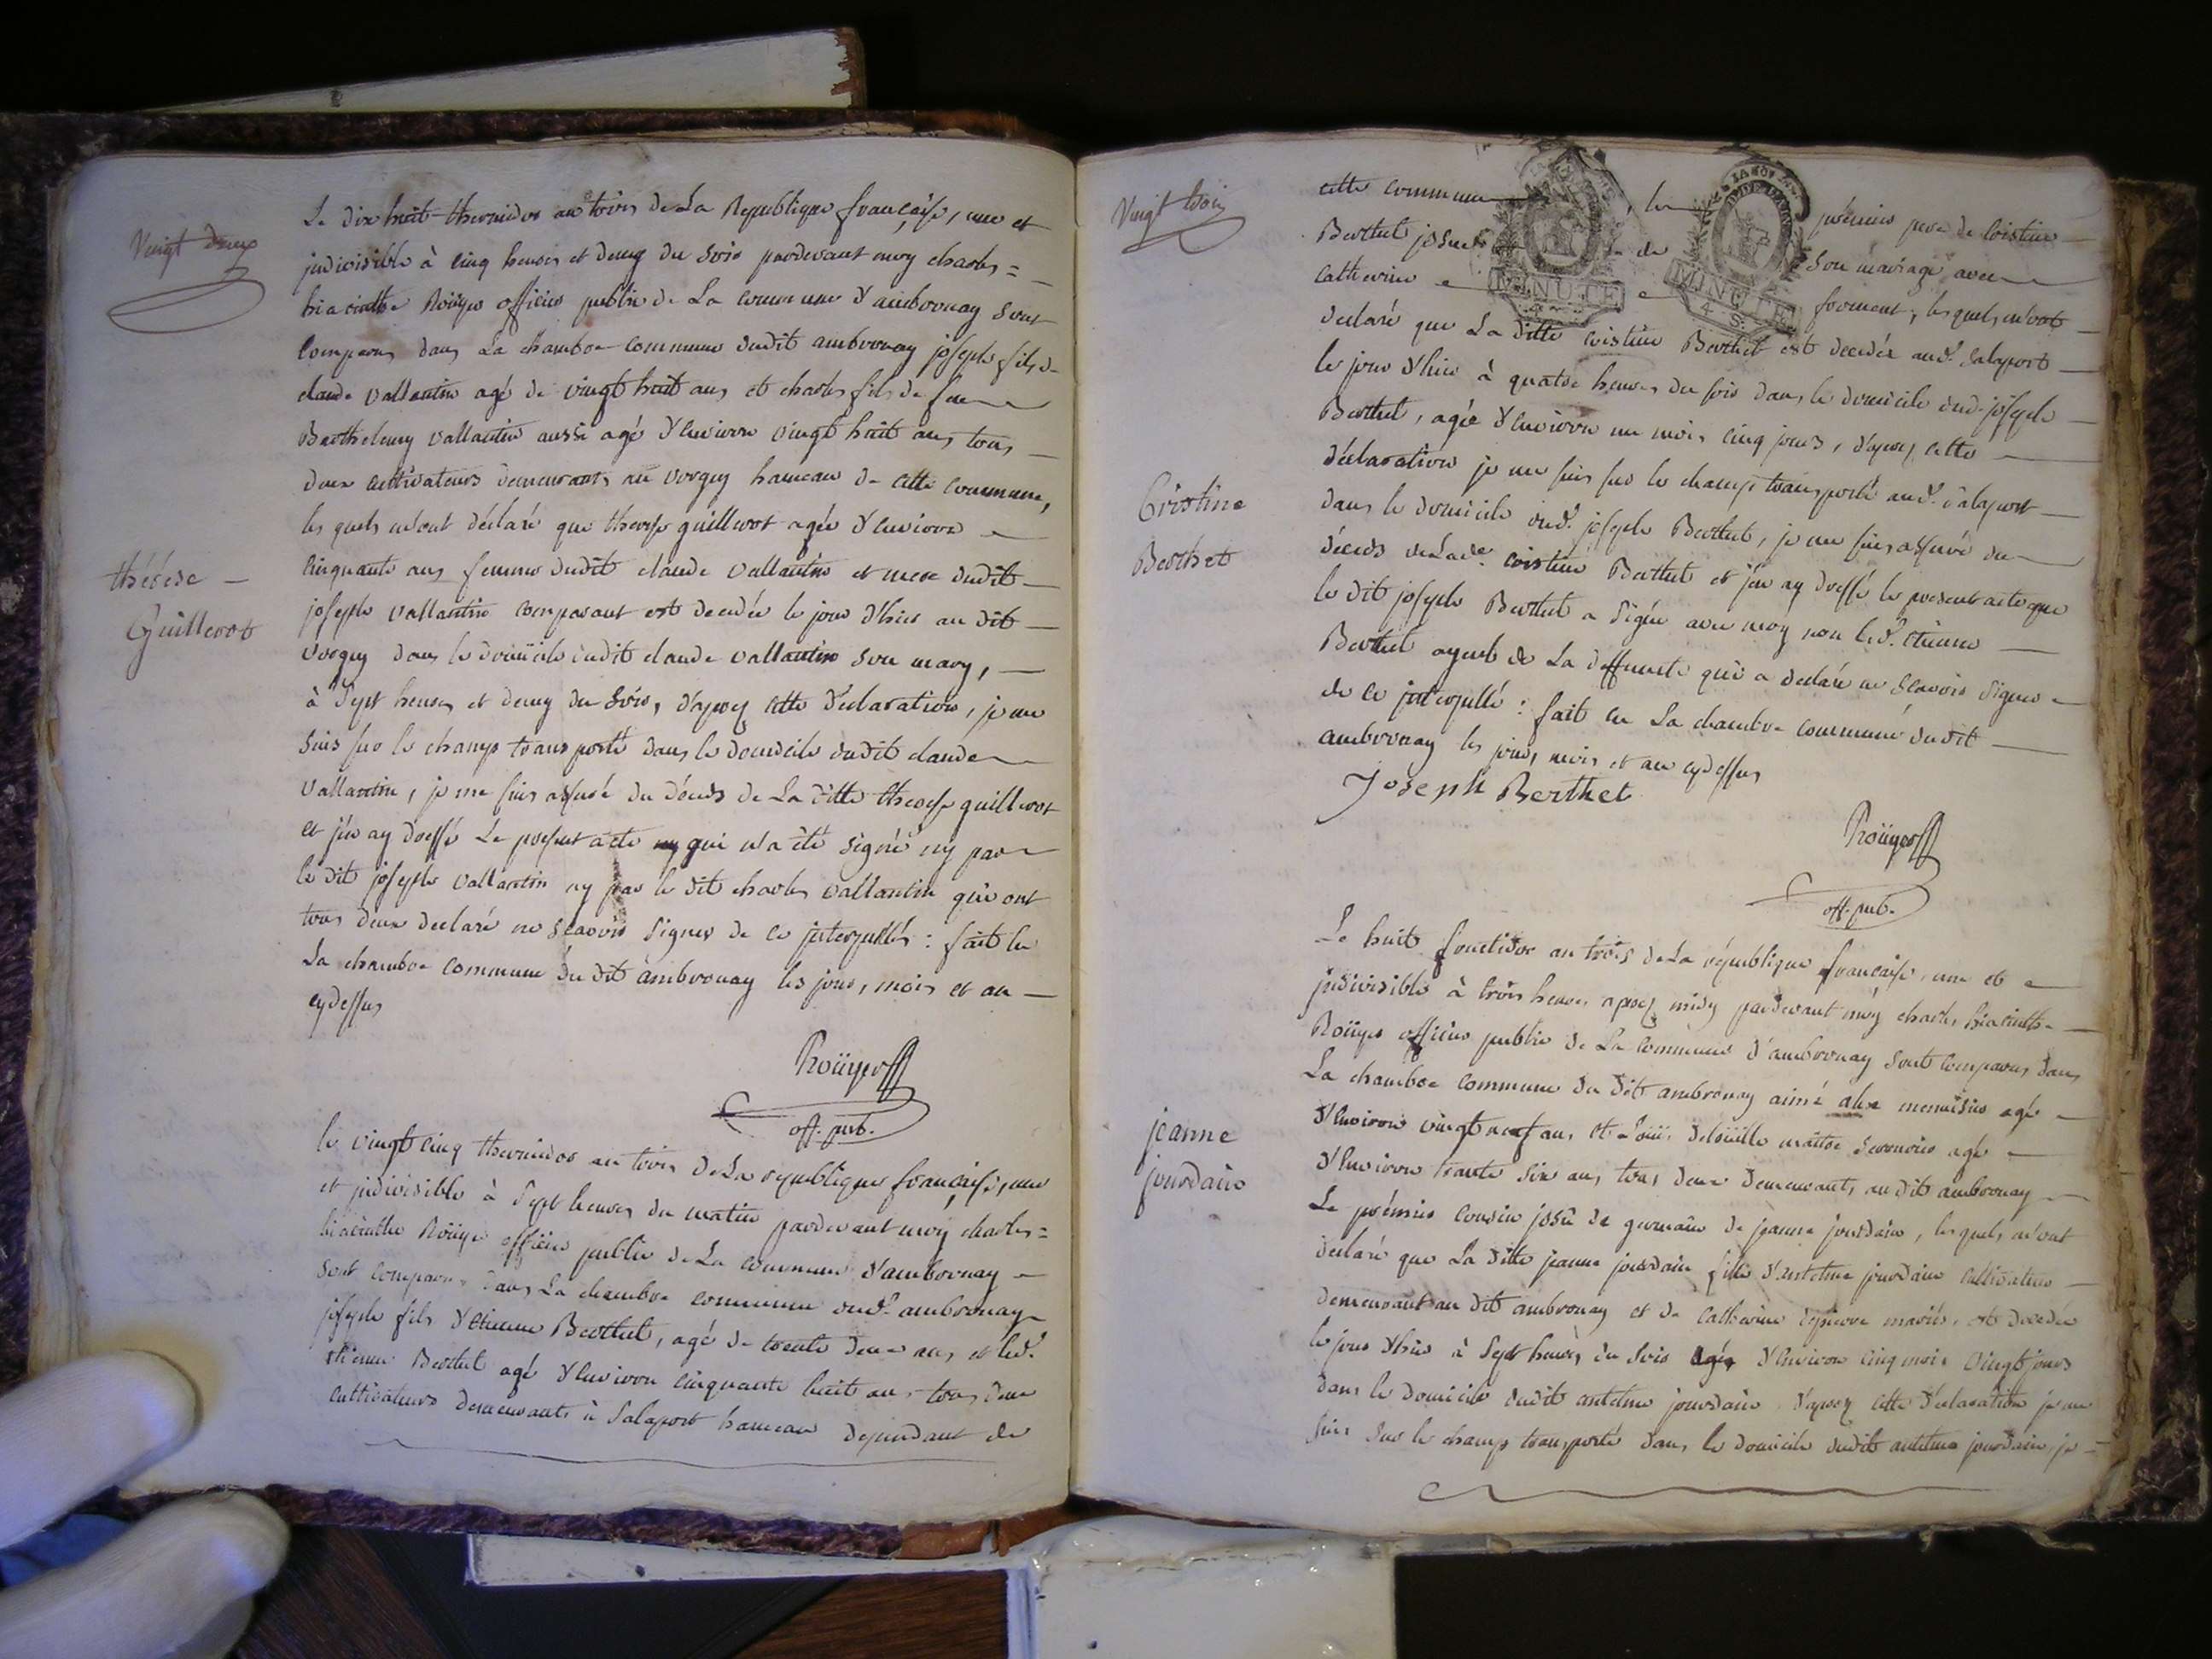 Vingt deux
Le dix huit thermidor an trois de La Republique française, une et
indivisible à cinq heures et demy du soir pardevant moy charles =
hiacinthe Roüyer officier public de La commune d'ambronay sont
comparus dans La chambre commune dudit ambronay joseph fils de
claude vallantin agé de vingt huit ans et charles fils de feu
Barthelemy vallantin aussi agé d'environ vingt huit ans, tous
deux cultivateurs demeurants au vorgey hameau de cette commune,
les quels m'ont déclaré que therese guillerot agée d'environ
thérése
Guillerot
cinquante ans femme dudit claude vallantin et mere dudit
joseph vallantin comparant est decedée le jour d'hier au dit
vorgey dans le domicile dudit claude vallantin son mary,
à sept heures et demy du soir, d'aprez cette déclaration, je me
suis sur le champ transporté dans le domicile dudit claude
vallantin, je me suis assuré du décès de La ditte therese guillerot
et j'en ay dressé Le present acte qui n'a été signé ny par
le dit joseph vallantin ny par le dit charles vallantin qui ont
tous deux declaré ne sçavoir signer de ce interpellés : fait en
La chambre commune du dit ambronay les jour, mois et an
cydessus
Roüyer
off. pub.
le vingt cinq thermidor an trois de La republique française, une
et indivisible à sept heures du matin pardevant moy charles =
hiacinthe Roüyer officier public de La commune d'ambronay
sont comparus dans La chambre commune dud. ambronay
joseph fils d'étienne Berthet, agé de trente deux ans, et led.
étienne Berthet agé d'environ cinquante huit ans, tous deux
cultivateurs demeurants à Salaport hameau dependant de
Vingt trois
cette commune, le premier pere de Cristine
Berthet issue de son mariage avec
Catherine froment, les quels m'ont
declaré que La ditte cristine Berthet est decedée aud. Salaport
le jour d'hier à quatre heures du soir dans le domicile dud. joseph
Berthet, agée d'environ un mois cinq jours, d'aprez cette
déclaration je me suis sur le champ transporté aud. Salaport
Cristine
Berthet
dans le domicile dud. joseph Berthet, je me suis assuré du
décès de Lade. cristine Berthet et j'en ay dressé le present acte que
le dit joseph Berthet a signé avec moy non led. étienne
Berthet ayeul de La deffunte qui a declaré ne sçavoir signer
de ce interpellé : fait en La chambre commune dudit
ambronay les jour, mois et an cydessus
Joseph Berthet
Roüyer
off. pub.
Le huit fructidor an trois de La république française, une et
indivisible à trois heures aprez midy pardevant moy charles hiacinthe
Roüyer officier public de La commune d'ambronay sont comparus dans
La chambre commune du dit ambronay aimé menuisier agé
jeanne
jourdain
d'environ vingt neuf ans et Loüis maitre serrurier agé
d'environ trante six ans, tous deux demeurants au dit ambronay
Le prémier cousin issû de germain de jeanne jourdain, les quels m'ont
declaré que La ditte jeanne jourdain fille d'antelme jourdain cultivateur
demeurant au dit ambronay et de catherine mariés, est decedée
le jour d'hier à sept heures du soir agée d'environ cinq mois vingt jours
dans le domicile dudit antelme jourdain, d'aprez cette déclaration je me
suis sur le champ transporté dans le domicile dudit antelme jourdain, je